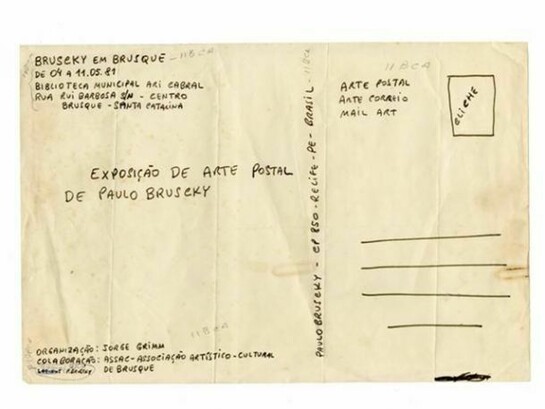 BRUSCKY EM BRUSQUE
DE 04 A 11.05.81
BIBLIOTECA MUNICIPAL ARI CABRAL
RUA RUI BARBOSA S/N - CENTRO
BRUSQUE - SANTA CATALINA
EXPOSIÇÃO DE ARTE POSTAL
DE PAULO BRUSCKY
ORGANIZAÇÃO: JORGE GRIMM
COLABORAÇÃO: ASSAC-ASSOCIAÇÃO ARTÍSTICO-CULTURAL
DE BRUSQUE
PAULO BRUSCKY - CP 850 - RECIFE - PE - BRASIL - 11BCA
11BCA
ARTE POSTAL
ARTE CORREIO
MAIL ART
CLICHE
11BCA
11BCA